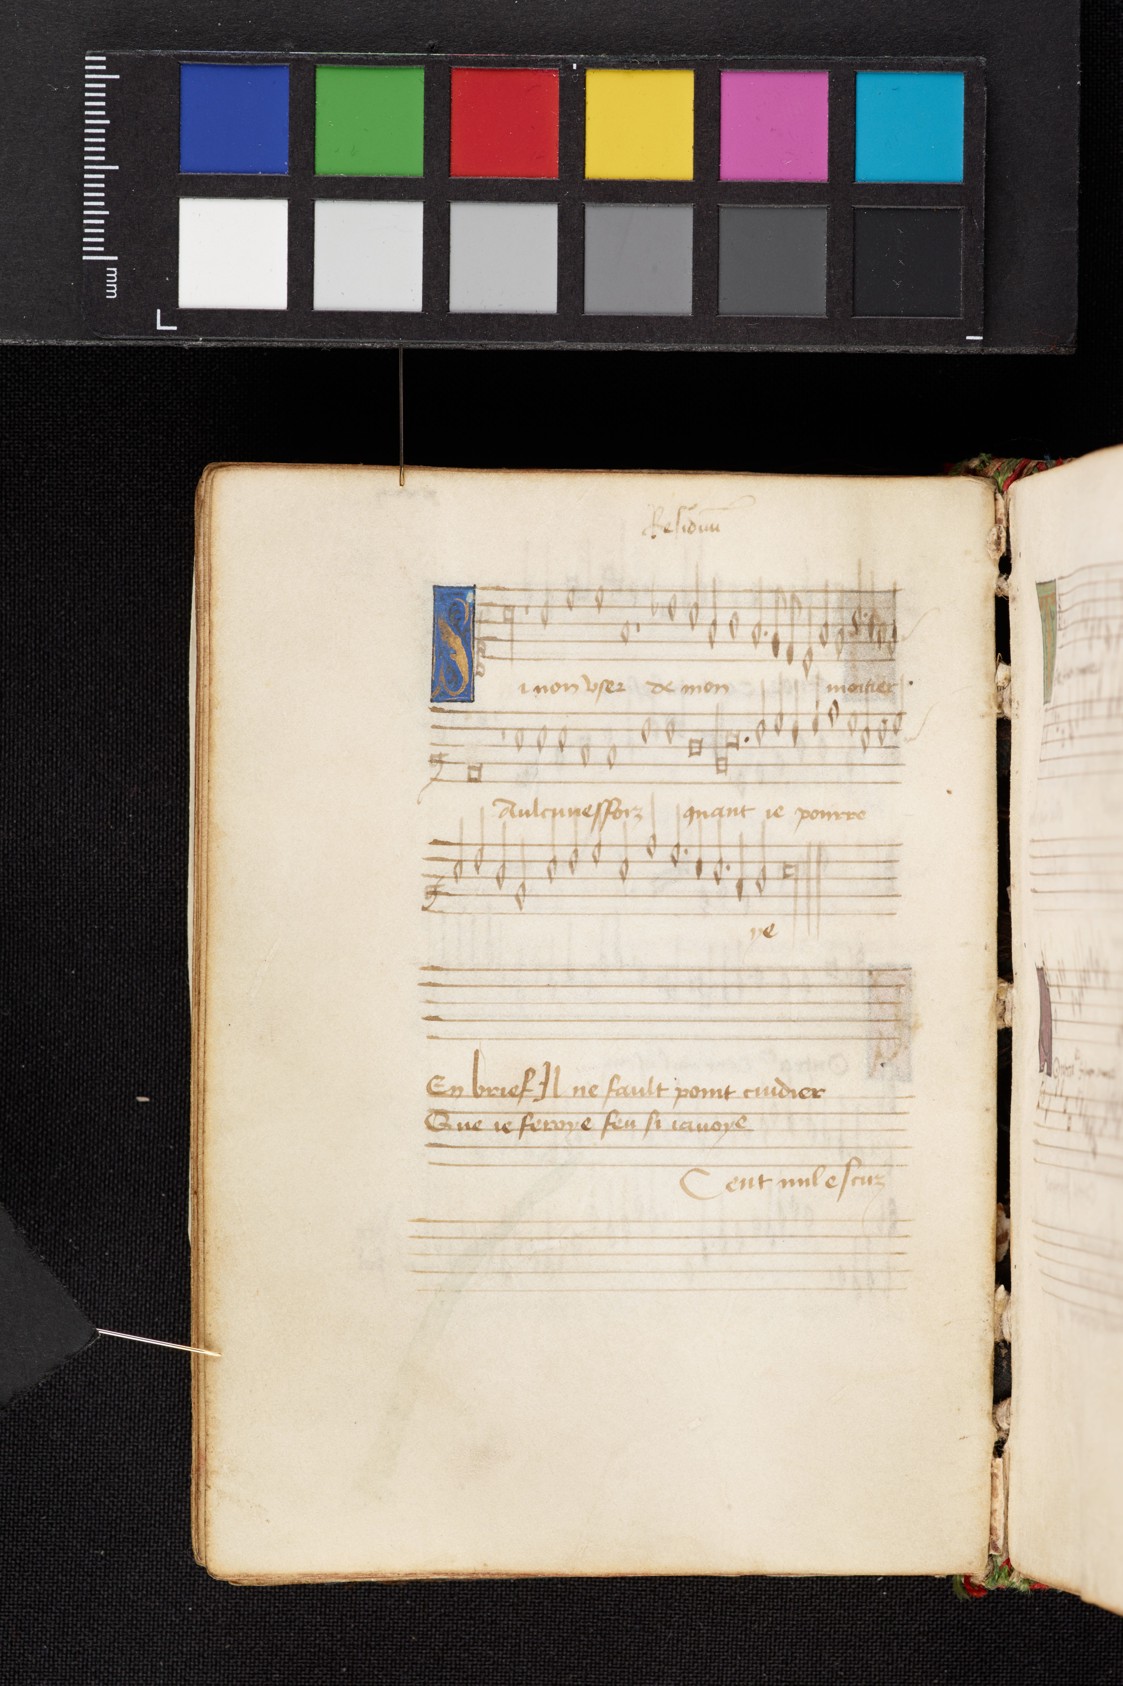 mm
Residuu
Si non user de mon mestier
Aulcuneffoiz quant ie pourro
ye
En brief Il ne fault point cuidier
Que ie feroye feu si iavoye
Cent mil escuz